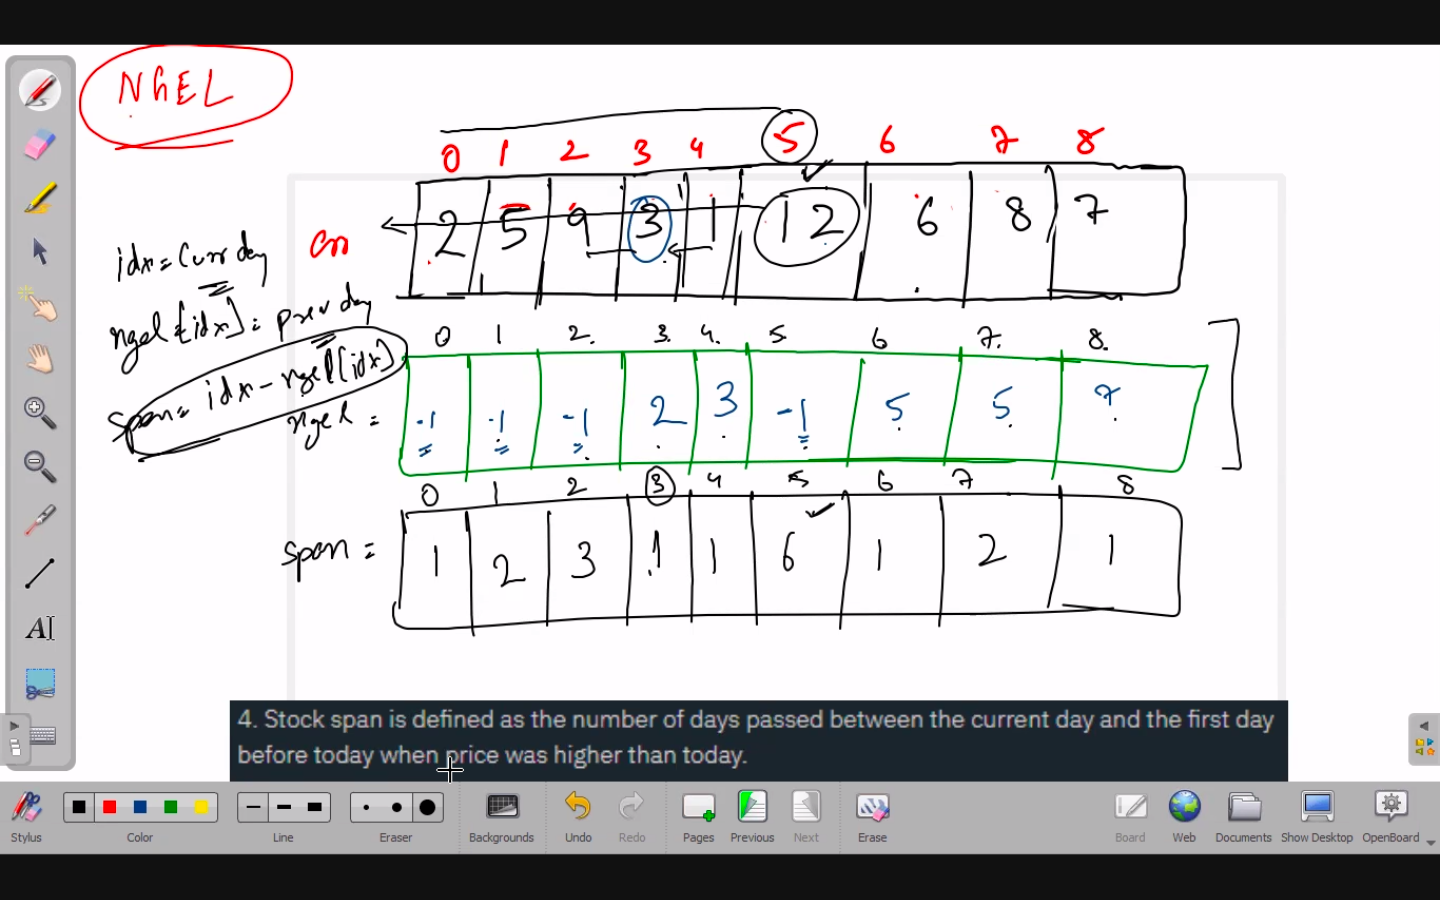 NGEL
0 1 2 3 4 5 6 7 8
arr 2 5 9 3 1 12 6 8 7
idx = Curr day
ngel[idx] = prev day
span = idx - ngel[idx]
0 1 2. 3. 4. 5. 6 7. 8.
ngel = -1 -1 -1 2 3 -1 5 5 7
0 1 2 3 4 5 6 7 8
span = 1 2 3 1 1 6 1 2 1
4. Stock span is defined as the number of days passed between the current day and the first day
before today when price was higher than today.
AI
Stylus Color Line Eraser Backgrounds Undo Redo Pages Previous Next Erase Board Web Documents Show Desktop OpenBoard